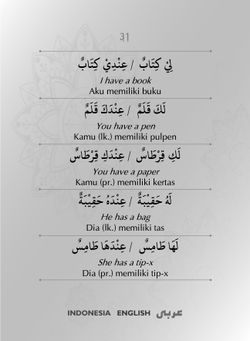 31
لِيْ كِتَابٌ / عِنْدِيْ كِتَابٌ
I have a book
Aku memiliki buku
لَكَ قَلَمٌ / عِنْدَكَ قَلَمٌ
You have a pen
Kamu (lk.) memiliki pulpen
لَكِ قِرْطَاسٌ / عِنْدَكِ قِرْطَاسٌ
You have a paper
Kamu (pr.) memiliki kertas
لَهُ حَقِيْبَةٌ / عِنْدَهُ حَقِيْبَةٌ
He has a bag
Dia (lk.) memiliki tas
لَهَا طَامِسٌ / عِنْدَهَا طَامِسٌ
She has a tip-x
Dia (pr.) memiliki tip-x
INDONESIA ENGLISH عربي